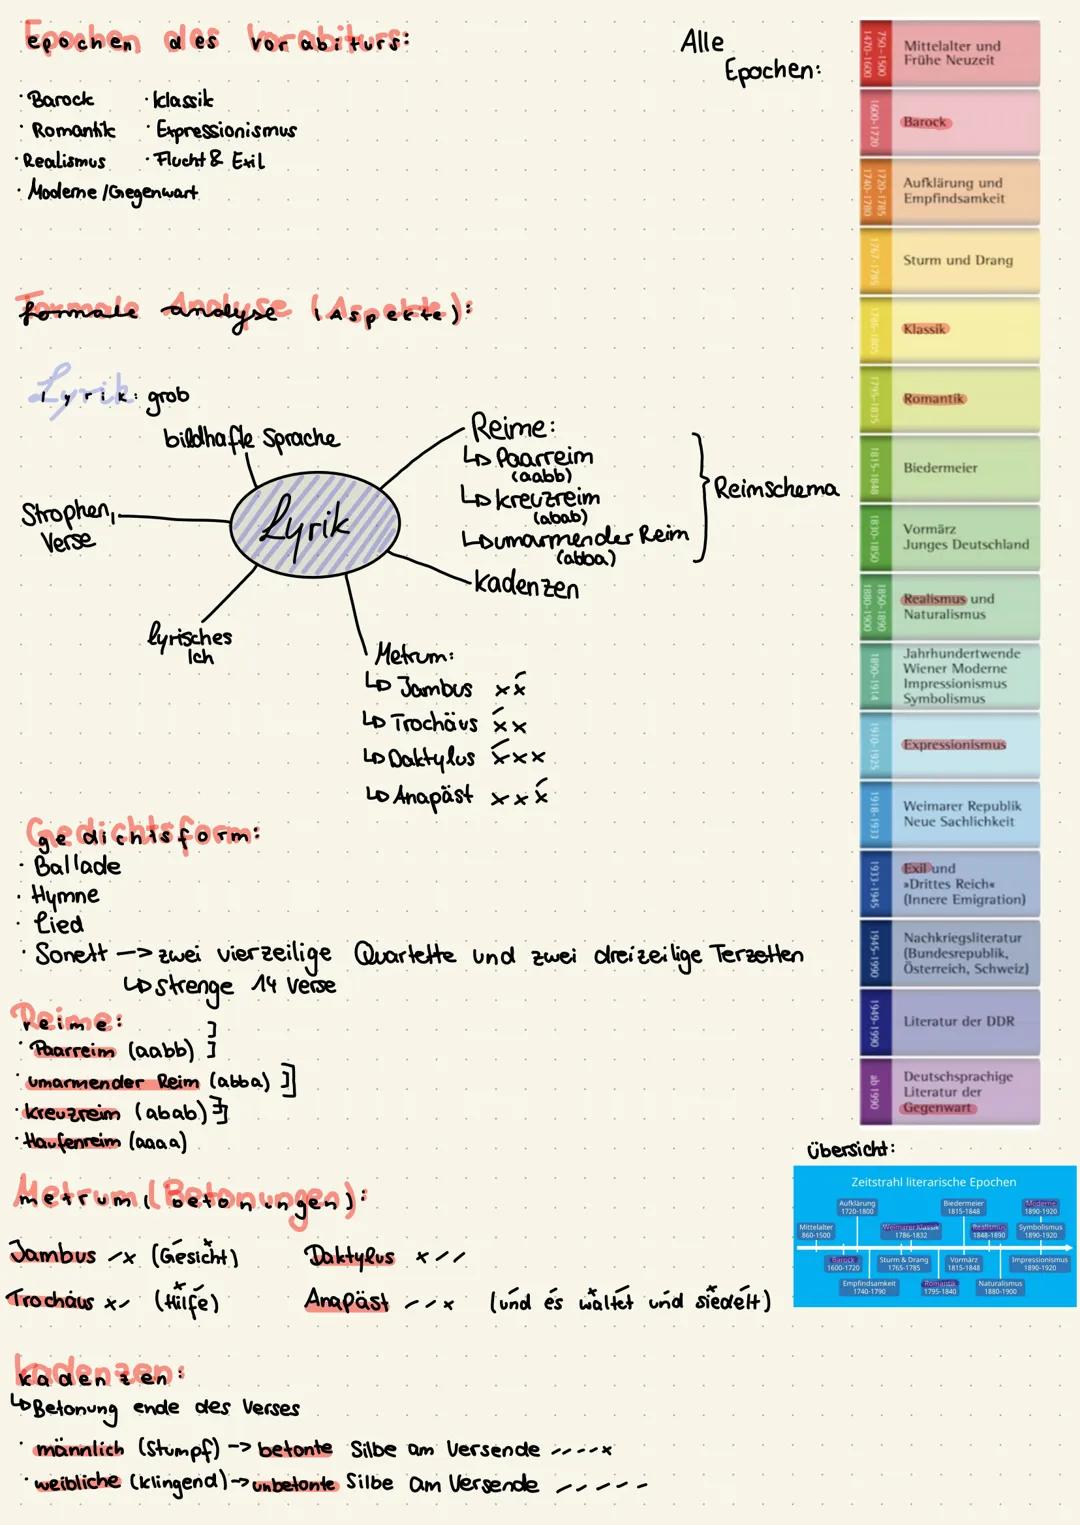 Epochen des Vorabiturs:
· Barock
· Klassik
· Romantik
· Expressionismus
· Realismus
· Flucht & Exil
· Moderne / Gegenwart
Alle
Epochen:
750-1500
1470-1600
Mittelalter und
Frühe Neuzeit
1600-1720
Barock
1720-1785
1740-1780
Aufklärung und
Empfindsamkeit
1767-1785
Sturm und Drang
1786-1805
Klassik
1795-1835
Romantik
1815-1848
Biedermeier
1830-1850
Vormärz
Junges Deutschland
1850-1890
1880-1900
Realismus und
Naturalismus
1890-1914
Jahrhundertwende
Wiener Moderne
Impressionismus
Symbolismus
1910-1925
Expressionismus
1918-1933
Weimarer Republik
Neue Sachlichkeit
1933-1945
Exil und
»Drittes Reich«
(Innere Emigration)
1945-1990
Nachkriegsliteratur
(Bundesrepublik,
Österreich, Schweiz)
1949-1990
Literatur der DDR
ab 1990
Deutschsprachige
Literatur der
Gegenwart
Formale Analyse (Aspekte):
Lyrik: grob
bildhafte Sprache
Strophen,
Verse
Lyrik
lyrisches
Ich
Reime:
↳ Paarreim
(aabb)
↳ kreuzreim
(abab)
↳ umarmender Reim
(abba)
Reimschema
kadenzen
Metrum:
↳ Jambus x x́
↳ Trochäus x́ x
↳ Daktylus x́ x x
↳ Anapäst x x x́
Gedichtsform:
· Ballade
· Hymne
· Lied
· Sonett -> zwei vierzeilige Quartette und zwei dreizeilige Terzetten
↳ strenge 14 Verse
Reime:
· Paarreim (aabb)
· umarmender Reim (abba)
· kreuzreim (abab)
· Haufenreim (aaaa)
Metrum (Betonungen):
Jambus / x (Gesicht)
Daktylus x / /
Trochäus x / (Hilfe)
Anapäst / / x (und es wältet und siedelt)
Kadenzen:
↳ Betonung ende des Verses
· männlich (Stumpf) -> betonte Silbe am Versende / / / / x
· weibliche (klingend) -> unbetonte Silbe am Versende / / / / /
Übersicht:
Zeitstrahl literarische Epochen
Aufklärung
1720-1800
Biedermeier
1815-1848
Moderne
1890-1920
Mittelalter
860-1500
Weimarer Klassik
1786-1832
Realismus
1848-1890
Symbolismus
1890-1920
Barock
1600-1720
Sturm & Drang
1765-1785
Vormärz
1815-1848
Impressionismus
1890-1920
Empfindsamkeit
1740-1790
Romantik
1795-1840
Naturalismus
1880-1900